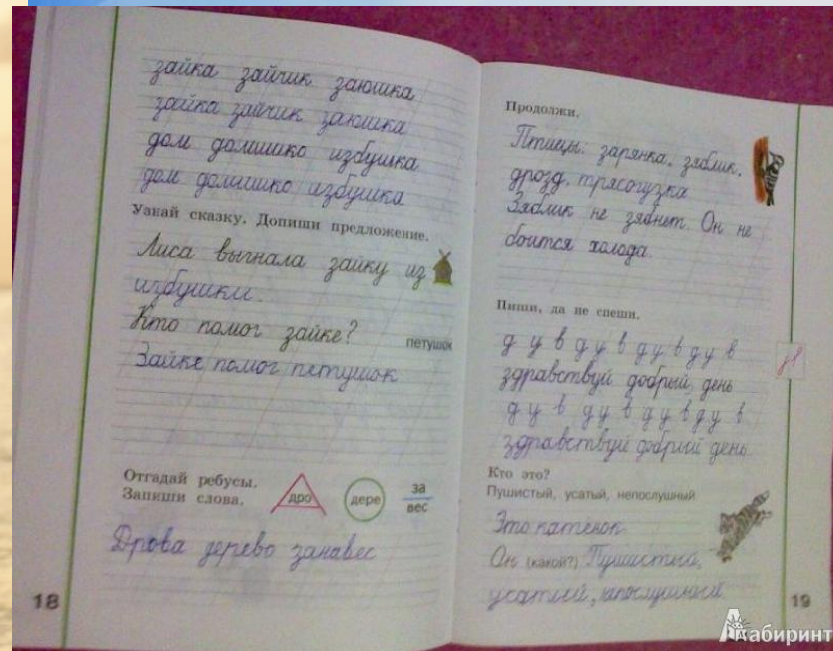 зайка зайчик заюшка
зайка зайчик заюшка
дом домишко избушка
дом домишко избушка
Узнай сказку. Допиши предложение.
Лиса выгнала зайку из
избушки.
Кто помог зайке? петушок
Зайке помог петушок
Отгадай ребусы.
Запиши слова.
дро дере за
вес
Дрова дерево занавес
18
Продолжи.
Птицы: зарянка, зяблик,
дрозд, трясогузка
Зяблик не зябнет. Он не
боится холода.
Пиши, да не спеши.
д у в д у в д у в д у в
здравствуй добрый день
д у в д у в д у в д у в
здравствуй добрый день
Кто это?
Пушистый, усатый, непослушный.
Это катёнок
Он (какой?) Пушистый,
усатый, непослушный
19
Лабиринт